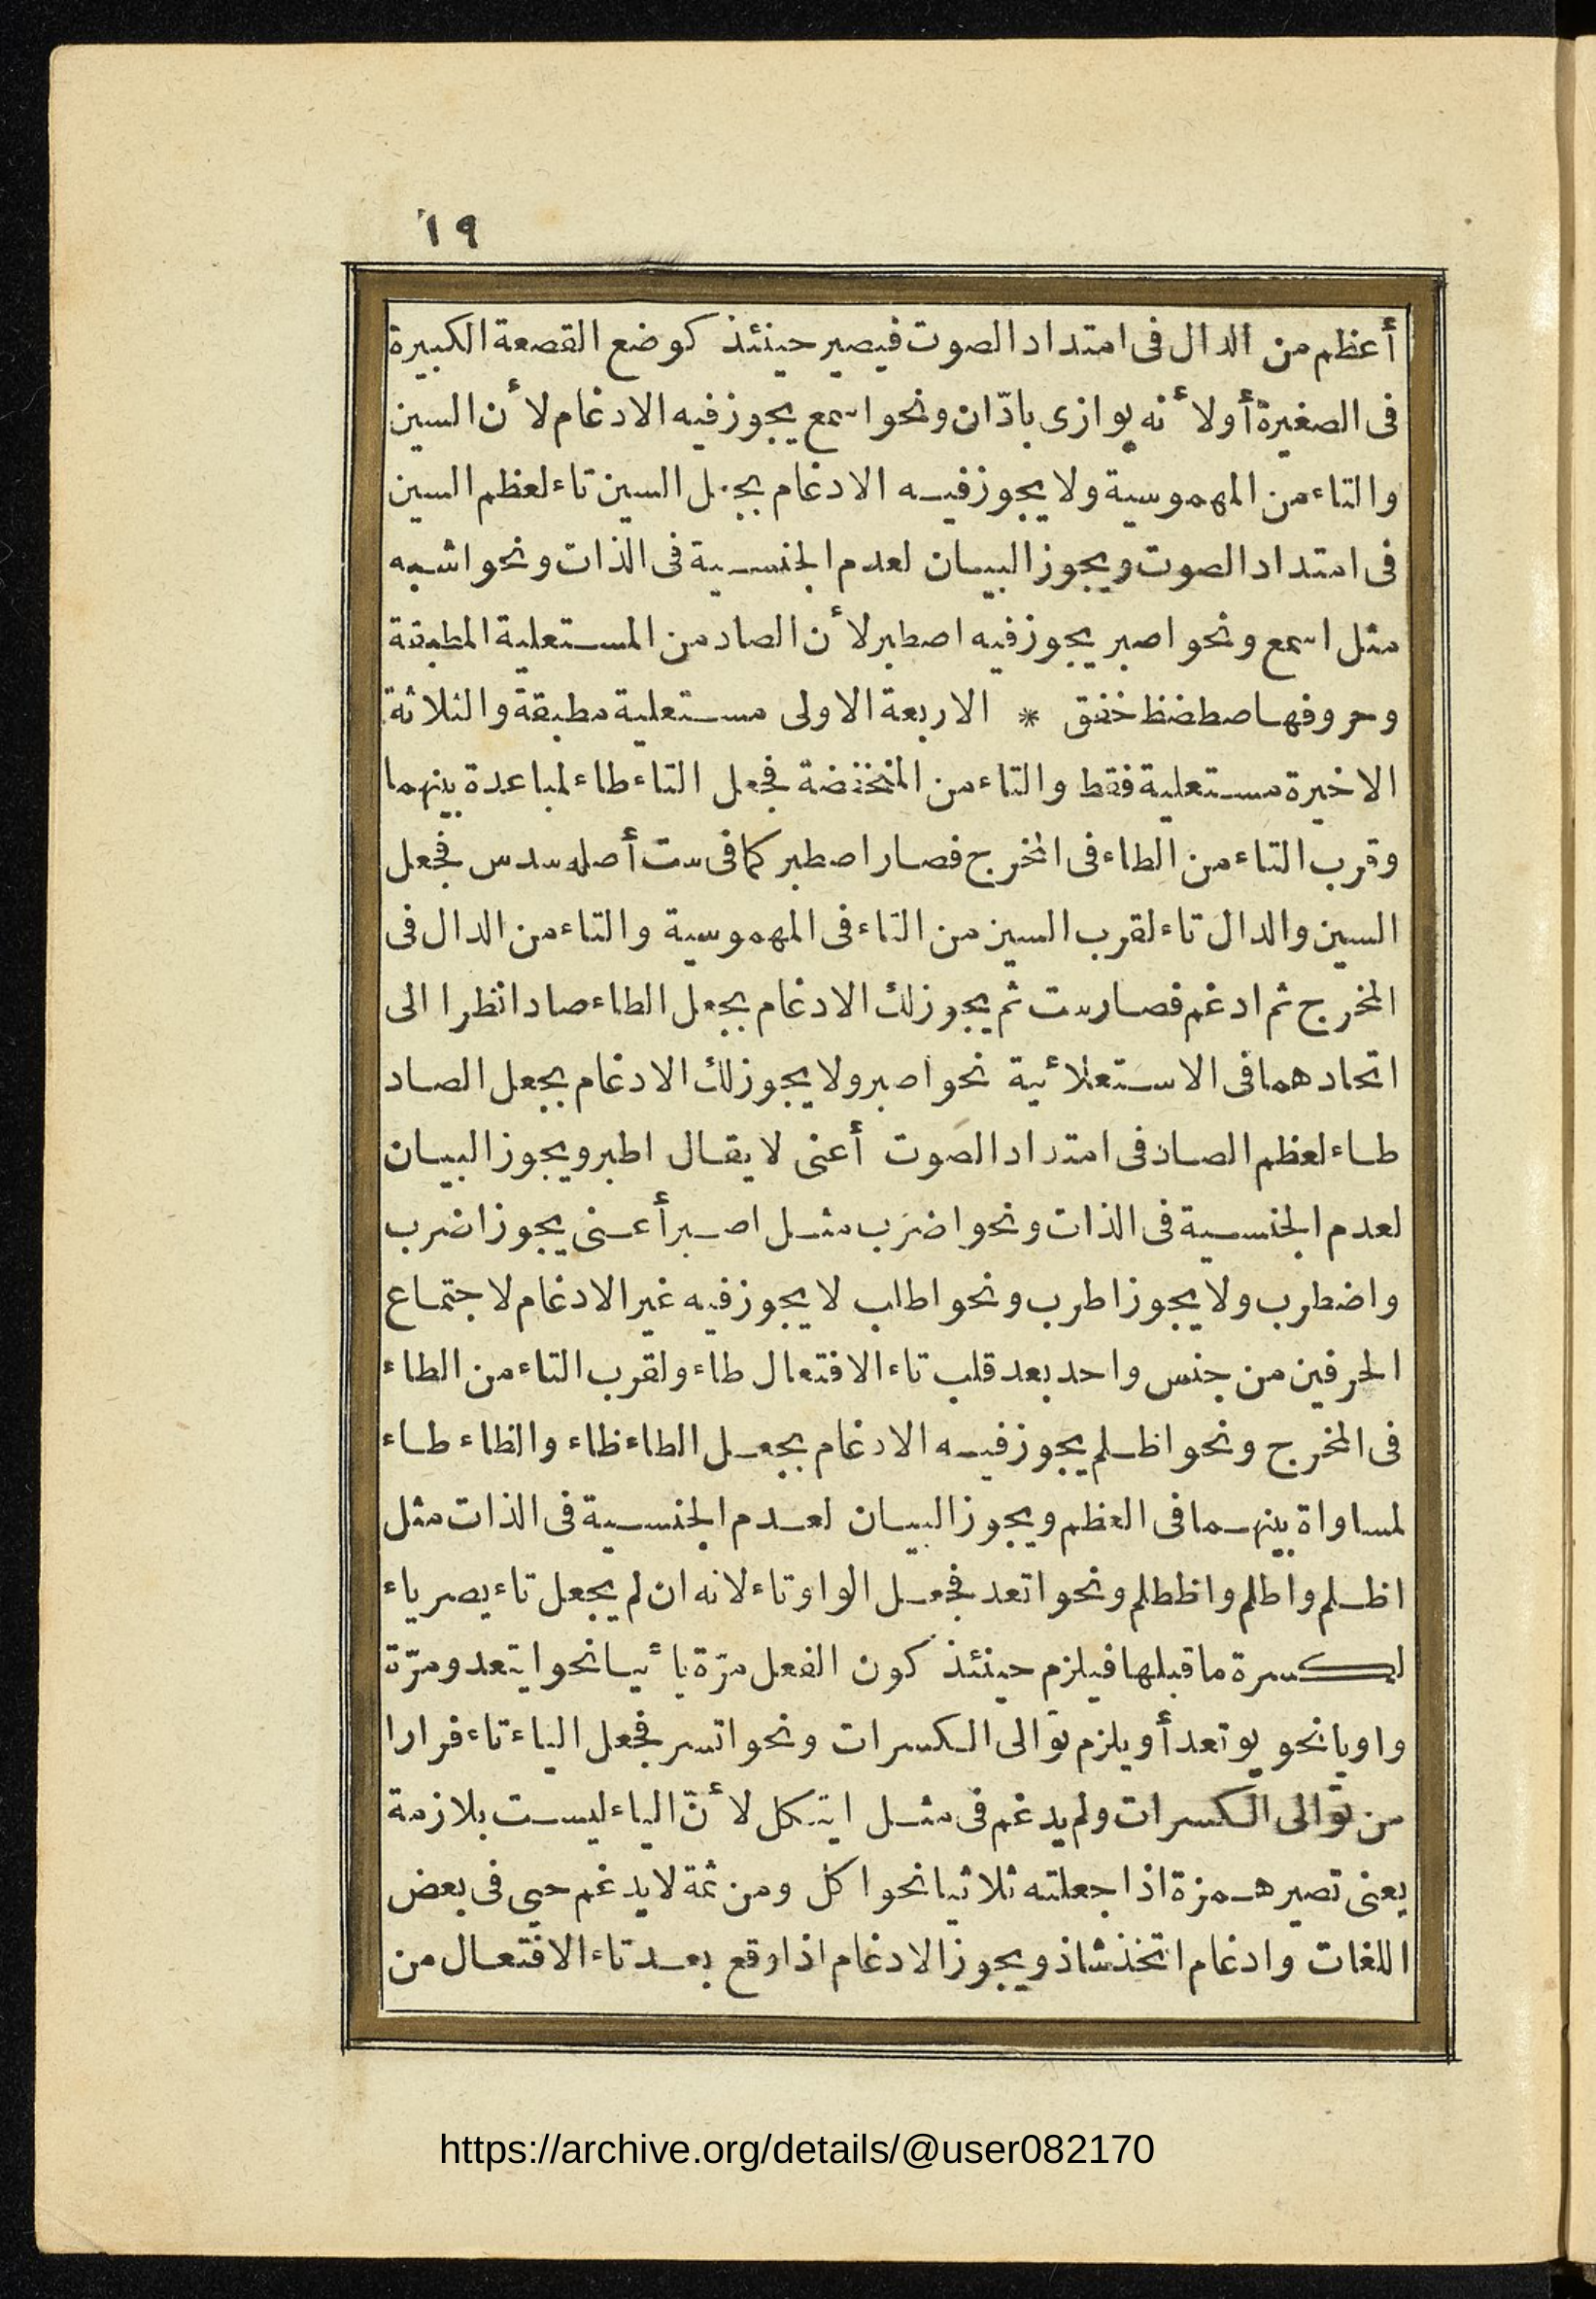 ١٩
أعظم من الدال فى امتداد الصوت فيصير حينئذ كوضع القصعة الكبيرة
فى الصغيرة أو لأنه يوازى بادّان ونحو اسمع يجوز فيه الادغام لأن السين
والتاء من المهموسية ولا يجوز فيه الادغام بجعل السين تاء لعظم السين
فى امتداد الصوت ويجوز البيان لعدم الجنسية فى الذات ونحو اشبه
مثل اسمع ونحو اصبر يجوز فيه اصطبر لأن الصاد من المستعلية المطبقة
وحروفها صطضظ خغق * الاربعة الاولى مستعلية مطبقة والثلاثة
الاخيرة مستعلية فقط والتاء من المنخفضة فجعل التاء طاء لمباعدة بينهما
وقرب التاء من الطاء فى المخرج فصار اصطبر كما فى ست أصله سدس فجعل
السين والدال تاء لقرب السين من التاء فى المهموسية والتاء من الدال فى
المخرج ثم ادغم فصار ست ثم يجوز لك الادغام بجعل الطاء صادا نظرا الى
اتحادهما فى الاستعلائية نحو اصبر ولا يجوز لك الادغام بجعل الصاد
طاء لعظم الصاد فى امتداد الصوت أعنى لا يقال اطبر ويجوز البيان
لعدم الجنسية فى الذات ونحو اضرب مثل اصبر أعنى يجوز اضرب
واضطرب ولا يجوز اطرب ونحو اطلب لا يجوز فيه غير الادغام لاجتماع
الحرفين من جنس واحد بعد قلب تاء الافتعال طاء ولقرب التاء من الطاء
فى المخرج ونحو اظلم يجوز فيه الادغام بجعل الطاء ظاء والظاء طاء
لمساواة بينهما فى العظم ويجوز البيان لعدم الجنسية فى الذات مثل
اظلم واطلم واظطلم ونحو اتعد فجعل الواو تاء لانه ان لم يجعل تاء يصر ياء
لكسرة ما قبلها فيلزم حينئذ كون الفعل مرّة يائيا نحو ايتعد ومرّة
واويا نحو يوتعد أو يلزم توالى الكسرات ونحو اتسر فجعل الياء تاء فرارا
من توالى الكسرات ولم يدغم فى مثل ايتكل لأنّ الياء ليست بلازمة
يعنى تصير همزة اذا جعلته ثلاثيا نحو اكل ومن ثمة لا يدغم حيى فى بعض
اللغات وادغام اتخذ شاذ ويجوز الادغام اذا وقع بعد تاء الافتعال من
https://archive.org/details/@user082170